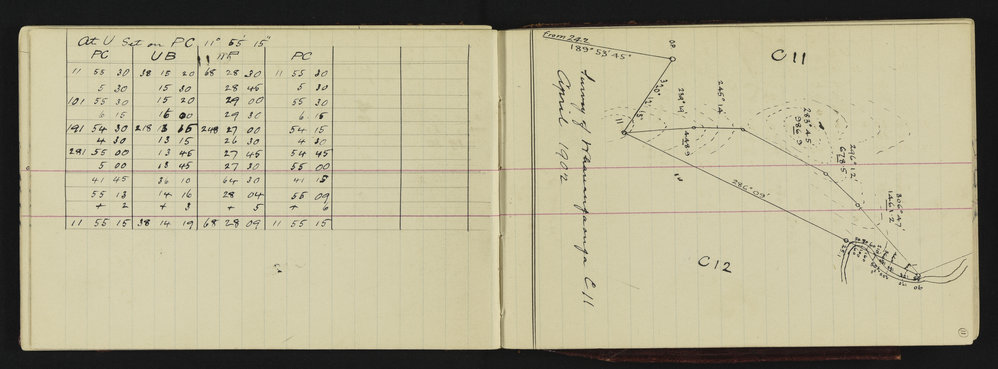 At U Set on PC 11° 55' 15"
PC UB MP PC
11 55 30 38 15 20 68 28 30 11 55 30
5 30 15 30 28 45 5 30
101 55 30 15 20 29 00 55 30
6 15 16 00 29 30 6 15
191 54 30 218 13 15 248 27 00 54 15
4 30 13 15 26 30 4 30
281 55 00 13 45 27 45 54 45
5 00 13 45 27 30 55 00
41 45 36 10 64 30 41 15
55 13 14 16 28 04 55 09
+ 2 + 3 + 5 + 6
11 55 15 38 14 19 68 28 09 11 55 15
From 242
189° 53' 45"
C 11
Survey of C 11
April 1902
11
245° 14'
448.9
283° 45'
986.9
296° 12'
678.5
306° 47'
1463.2
286° 09'
C 12
11